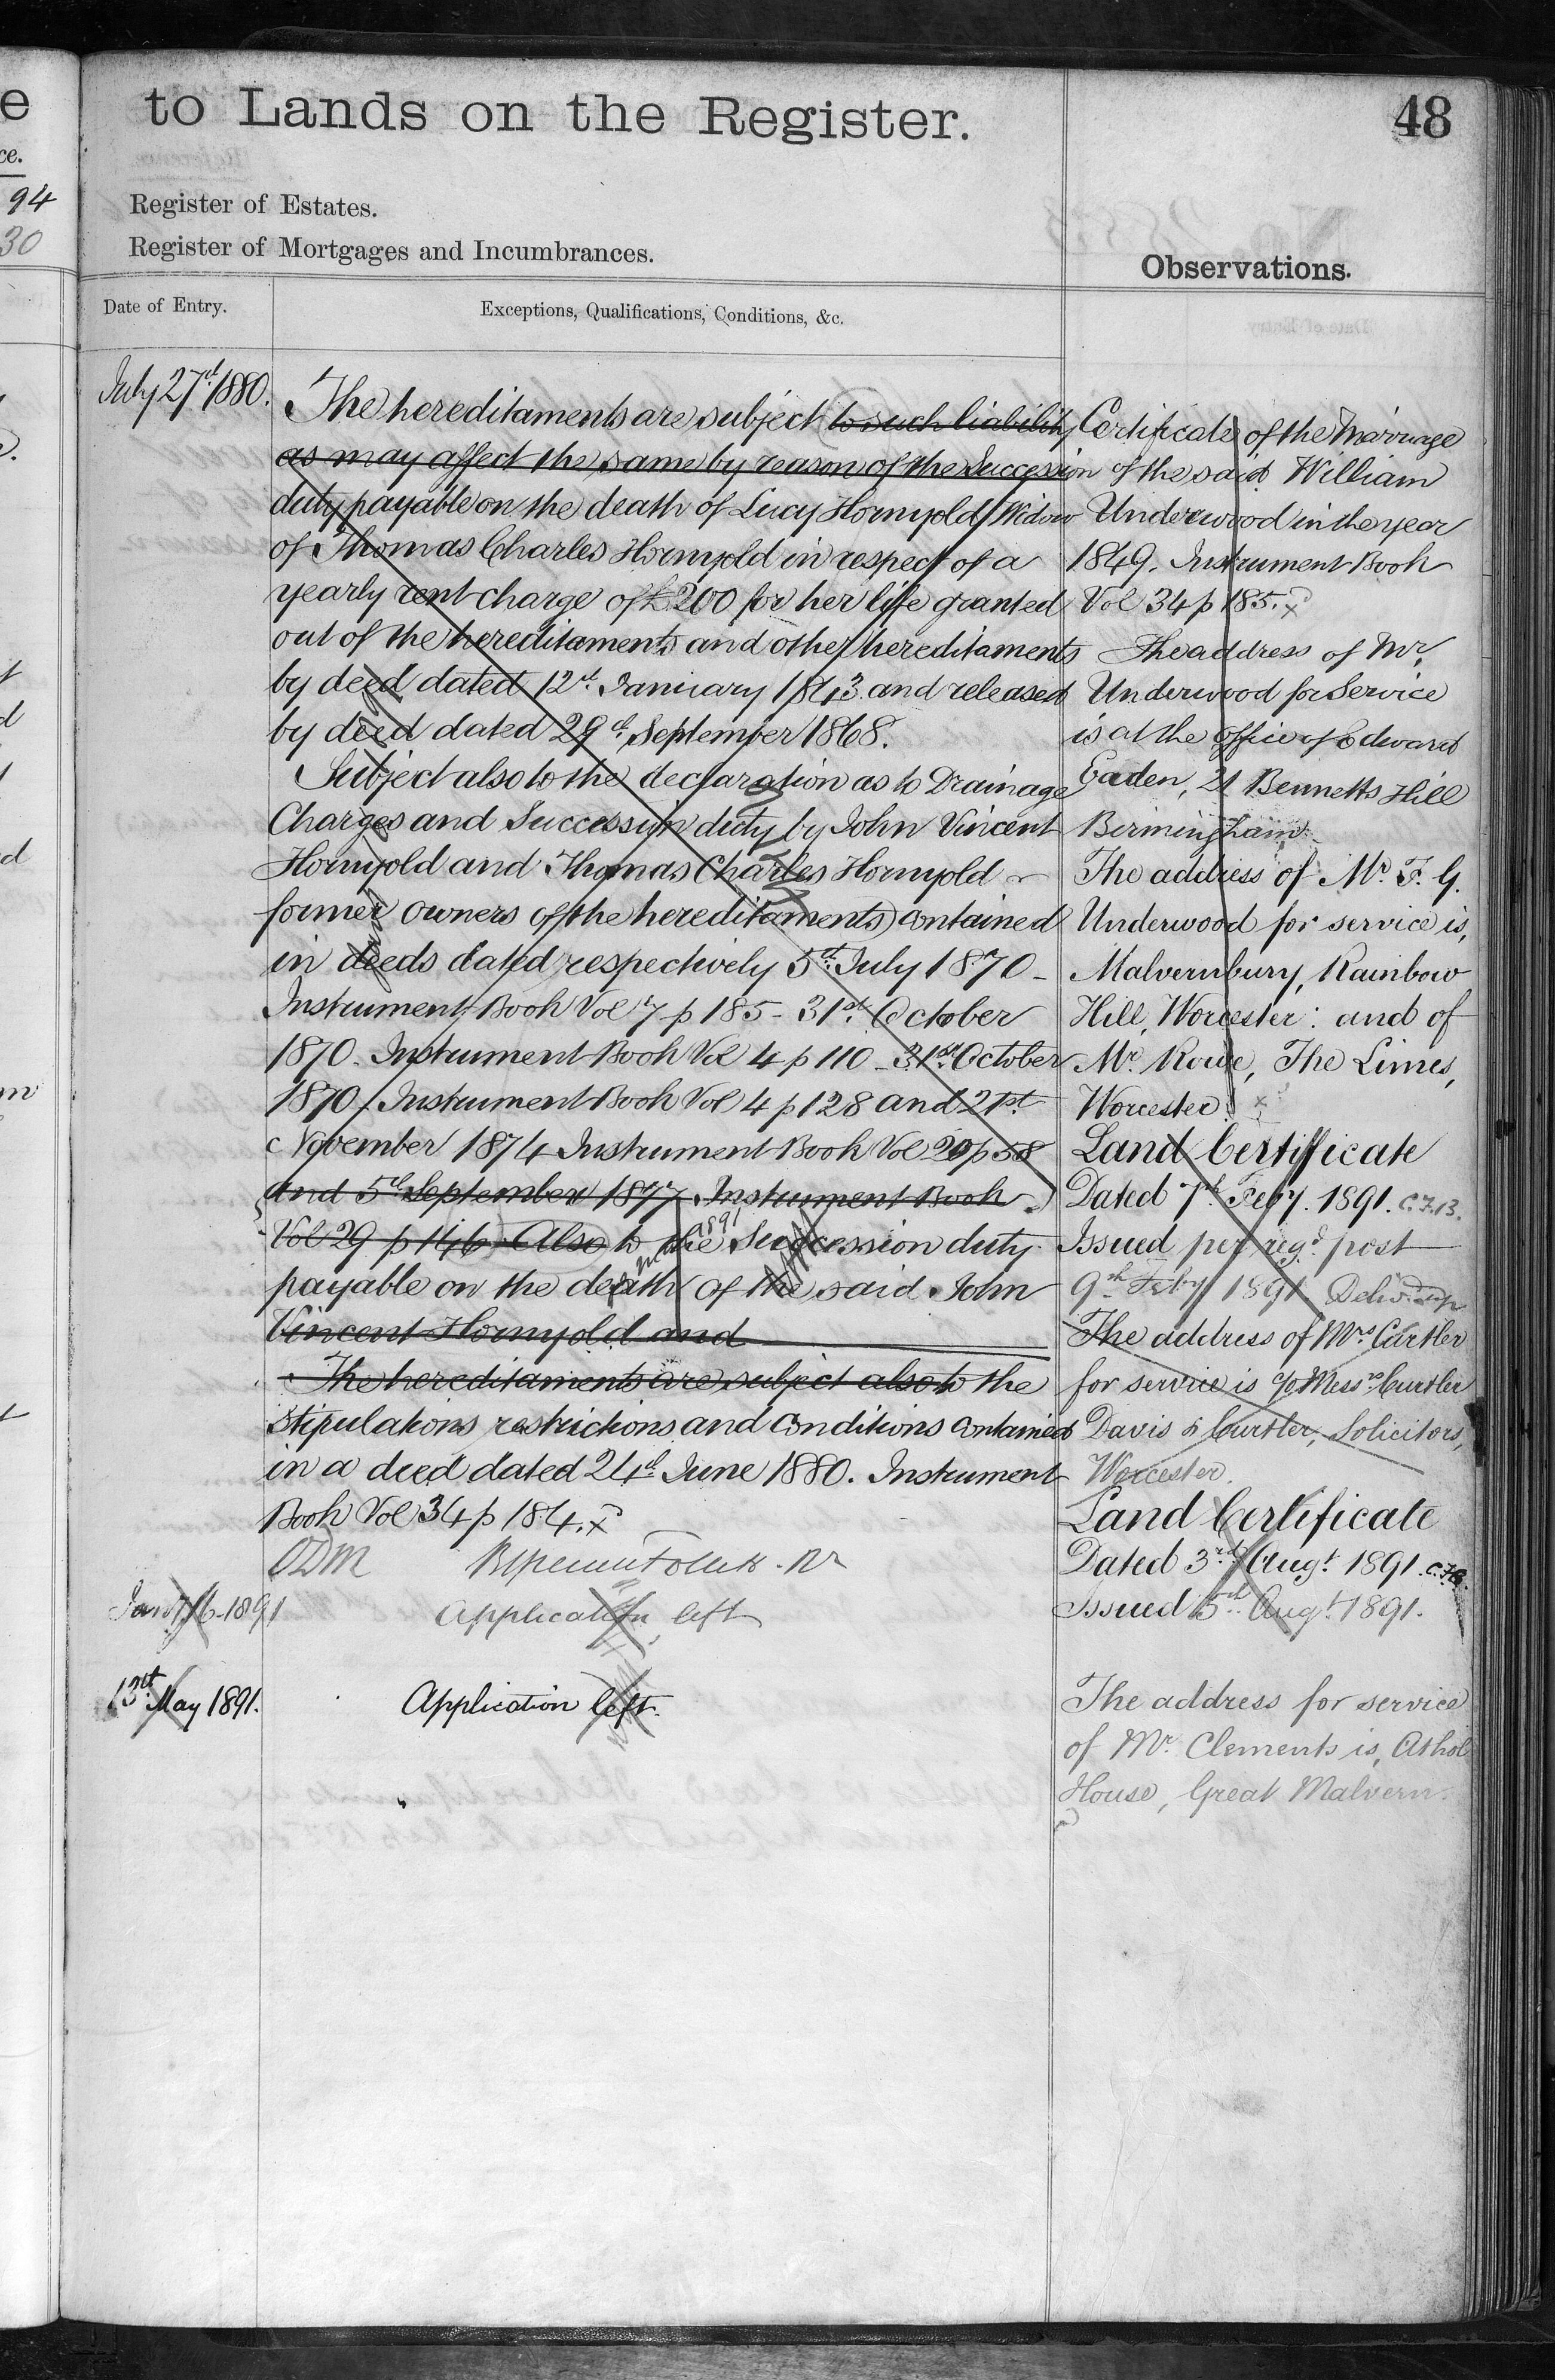 to Lands on the Register.
48
Register of Estates.
Register of Mortgages and Incumbrances.
Observations.
Date of Entry.
Exceptions, Qualifications, Conditions, &c.
July 27th 1880.
The hereditaments are subject to such liability
as may affect the same by reason of the Succession
duty payable on the death of Lucy Hornyold Widow
of Thomas Charles Hornyold in respect of a
yearly rent charge of £200 for her life granted
out of the hereditaments and other hereditaments
by deed dated 12th January 1843 and released
by deed dated 29th September 1868.
Subject also to the declaration as to Drainage
Charges and Succession duty by John Vincent
Hornyold and Thomas Charles Hornyold
former owners of the hereditaments contained
in deeds dated respectively 5th July 1870 -
Instrument Book Vol 7 p 185 - 31st October
1870. Instrument Book Vol 4 p 110 - 31st October
1870. Instrument Book Vol 4 p 128 and 21st
November 1874 Instrument Book Vol 20 p 58
and 5th September 1877 Instrument Book
Vol 29 p 146 Also to the Succession duty
1891
payable on the death of the said John
Vincent Hornyold and
The hereditaments are subject also to the
Stipulations restrictions and conditions contained
in a deed dated 24th June 1880. Instrument
Book Vol 34 p 184. x
Jany 16 1891
Application left
13th May 1891.
Application left.
Certificate of the Marriage
of the said William
Underwood in the year
1849. Instrument Book
Vol 34 p 185. x
The address of Mr.
Underwood for Service
is at the office of Edward
Eaden, 21 Bennetts Hill
Birmingham
The address of Mr. F. G.
Underwood for service is,
Malvernbury, Rainbow
Hill, Worcester: and of
Mr. Rowe, The Limes,
Worcester. x
Land Certificate
Dated 7th Feby. 1891. C.F.B.
Issued per regd. post
9th Feby 1891 Delivd. up
The address of Mrs. Curtler
for service is c/o Messrs. Curtler
Davis & Curtler, Solicitors,
Worcester.
Land Certificate
Dated 3rd Augt. 1891. C.F.B.
Issued 5th Augt. 1891.
The address for service
of Mr. Clements is, Athol
House, Great Malvern.
e
ce.
94
30